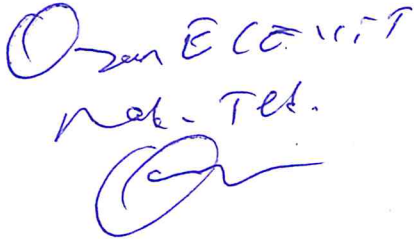 Ozan ECEVİT
Mak. Tek.